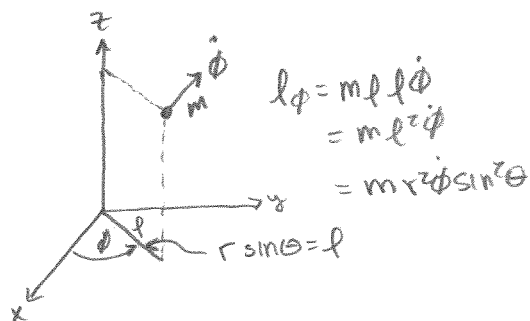 z
ϕ̇
m
ℓϕ = mℓℓϕ̇
= mℓ²ϕ̇
= mr²ϕ̇ sin²θ
y
ℓ
ϕ
r sinθ = ℓ
x